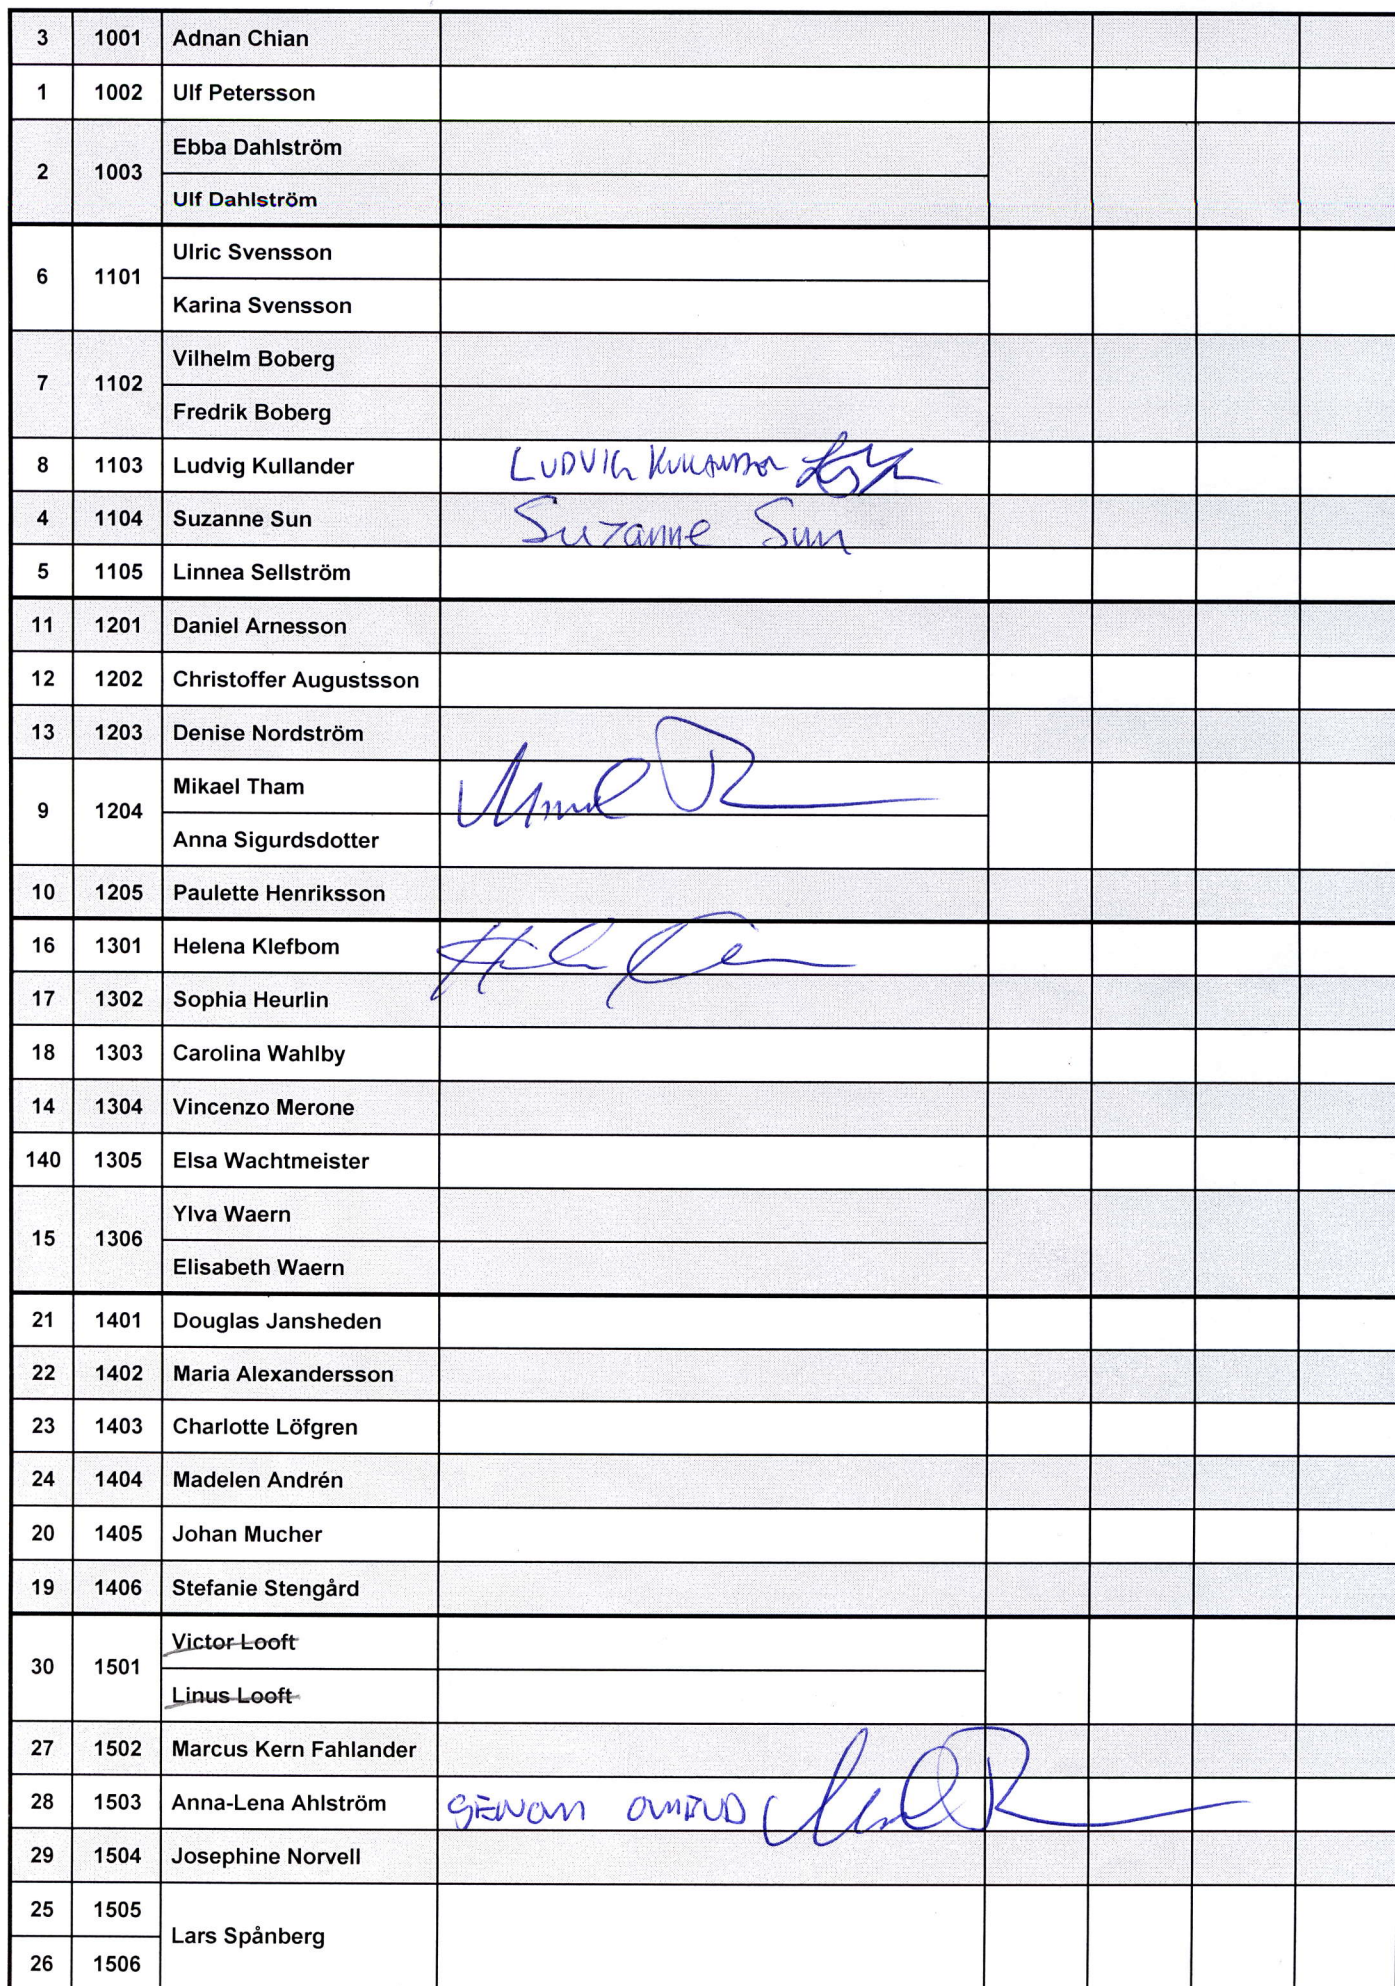 3 1001 Adnan Chian
1 1002 Ulf Petersson
2 1003 Ebba Dahlström
Ulf Dahlström
6 1101 Ulric Svensson
Karina Svensson
7 1102 Vilhelm Boberg
Fredrik Boberg
8 1103 Ludvig Kullander LUDVIG KULLANDER
4 1104 Suzanne Sun Suzanne Sun
5 1105 Linnea Sellström
11 1201 Daniel Arnesson
12 1202 Christoffer Augustsson
13 1203 Denise Nordström
9 1204 Mikael Tham
Anna Sigurdsdotter
10 1205 Paulette Henriksson
16 1301 Helena Klefbom
17 1302 Sophia Heurlin
18 1303 Carolina Wahlby
14 1304 Vincenzo Merone
140 1305 Elsa Wachtmeister
15 1306 Ylva Waern
Elisabeth Waern
21 1401 Douglas Jansheden
22 1402 Maria Alexandersson
23 1403 Charlotte Löfgren
24 1404 Madelen Andrén
20 1405 Johan Mucher
19 1406 Stefanie Stengård
30 1501 Victor Looft
Linus Looft
27 1502 Marcus Kern Fahlander
28 1503 Anna-Lena Ahlström GENOM OMBUD
29 1504 Josephine Norvell
25 1505 Lars Spånberg
26 1506